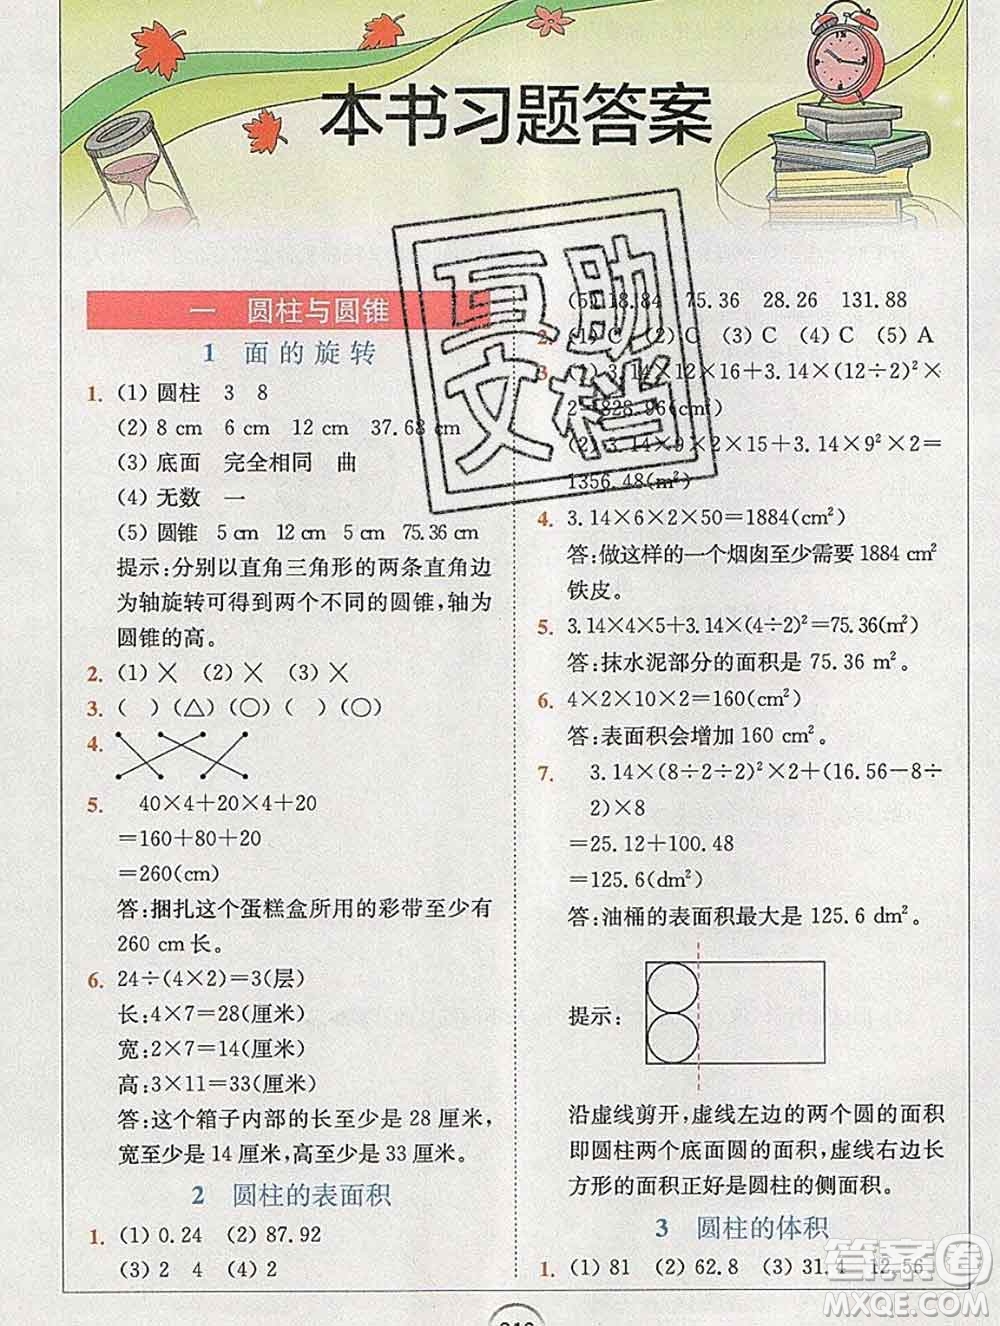 本书习题答案
一 圆柱与圆锥
1 面的旋转
1. (1) 圆柱 3 8
(2) 8 cm 6 cm 12 cm 37.68 cm
(3) 底面 完全相同 曲
(4) 无数 一
(5) 圆锥 5 cm 12 cm 5 cm 75.36 cm
提示:分别以直角三角形的两条直角边
为轴旋转可得到两个不同的圆锥,轴为
圆锥的高。
2. (1) × (2) × (3) ×
3. ( ) (△) (○) ( ) (○)
4.
5. 40×4+20×4+20
=160+80+20
=260(cm)
答:捆扎这个蛋糕盒所用的彩带至少有
260 cm 长。
6. 24÷(4×2)=3(层)
长:4×7=28(厘米)
宽:2×7=14(厘米)
高:3×11=33(厘米)
答:这个箱子内部的长至少是 28 厘米,
宽至少是 14 厘米,高至少是 33 厘米。
2 圆柱的表面积
1. (1) 0.24 (2) 87.92
(3) 2 4 (4) 2
(5) 18.84 75.36 28.26 131.88
2. (1) C (2) C (3) C (4) C (5) A
3. (1) 3.14×12×16+3.14×(12÷2)²×
2=828.96(cm²)
(2) 3.14×9×2×15+3.14×9²×2=
1356.48(m²)
4. 3.14×6×2×50=1884(cm²)
答:做这样的一个烟囱至少需要 1884 cm²
铁皮。
5. 3.14×4×5+3.14×(4÷2)²=75.36(㎡)
答:抹水泥部分的面积是 75.36 m²。
6. 4×2×10×2=160(cm²)
答:表面积会增加 160 cm²。
7. 3.14×(8÷2÷2)²×2+(16.56-8÷
2)×8
=25.12+100.48
=125.6(dm²)
答:油桶的表面积最大是 125.6 dm²。
提示:
沿虚线剪开,虚线左边的两个圆的面积
即圆柱两个底面圆的面积,虚线右边长
方形的面积正好是圆柱的侧面积。
3 圆柱的体积
1. (1) 81 (2) 62.8 (3) 31.4 12.56
互助
文档
答案圈
MXQE.COM